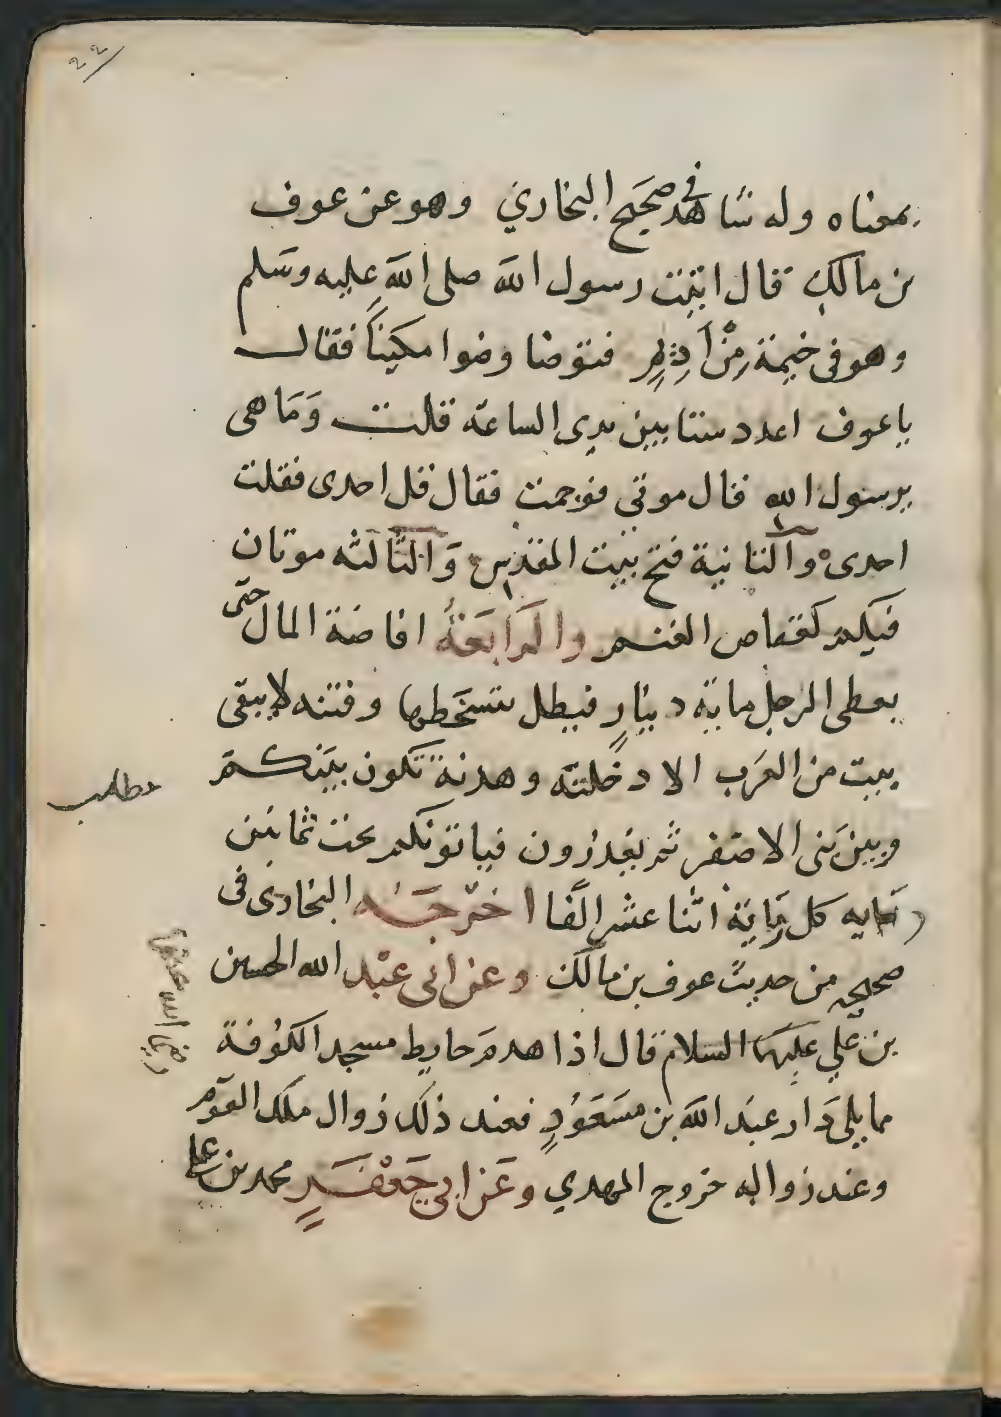 ٢٢
بمعناه وله شاهد في صحيح البخاري وهو عن عوف
بن مالك قال اتيت رسول الله صلى الله عليه وسلم
وهو فى خيمة من آدم فتوضا وضوا مكينا فقال
يا عوف اعدد ستا بين يدى الساعة قلت وما هى
يرسول الله قال موتى فوجمت فقال قل احدى فقلت
احدى والثانية فتح بيت المقدس والثالثه موتان
فيكم كقعاص الغنم والرابعة افاضة المال حتى
يعطى الرجل ماية دينار فيظل يتسخطها وفتنه لا يبقى
بيت من العرب الا دخلته وهدنة تكون بينكم
مطلب
وبين بنى الاصفر ثم يغدرون فياتونكم تحت ثمانين
راية كل راية اثنا عشر الفا اخرجه البخارى فى
صحيحه من حديث عوف بن مالك وعن ابى عبد الله الحسين
رضي الله عنهما
بن علي عليهما السلام قال اذا هدم حايط مسجد الكوفة
مما يلى دار عبد الله بن مسعود فعند ذلك زوال ملك القوم
وعند زواله خروج المهدي وعن ابي جعفر محمد بن علي